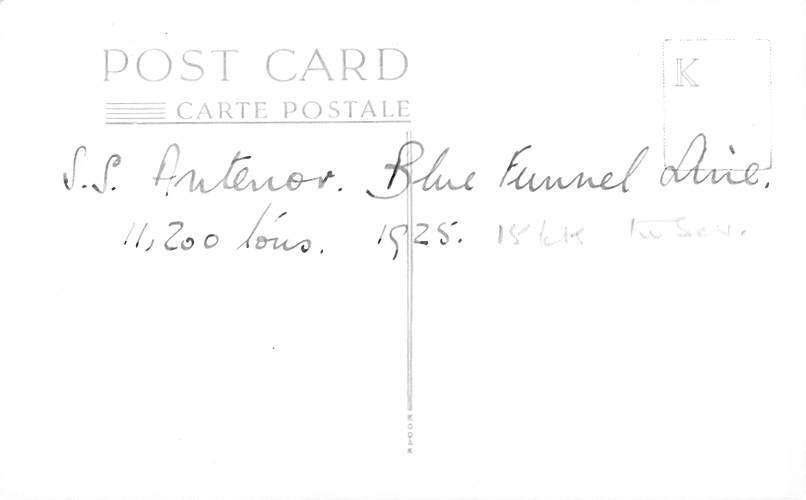 POST CARD
CARTE POSTALE
K
S.S. Antenor. Blue Funnel Line.
11,200 tons. 1925. 15 kts
KODAK